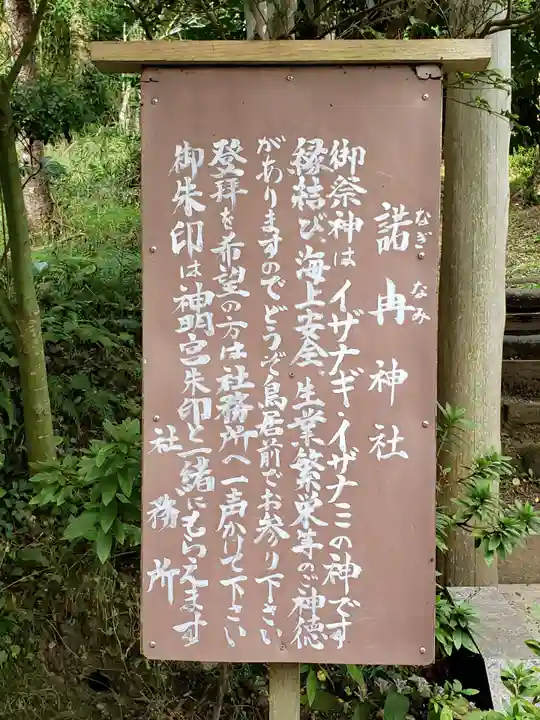 諾冉神社
なぎ なみ
御祭神は イザナギ・イザナミの神です
縁結び、海上安全、生業繁栄等のご神徳
がありますのでどうぞ鳥居前でお参り下さい
登拝を希望の方は社務所へ一声かけて下さい
御朱印は神明宮朱印と一緒にもらえます
社務所